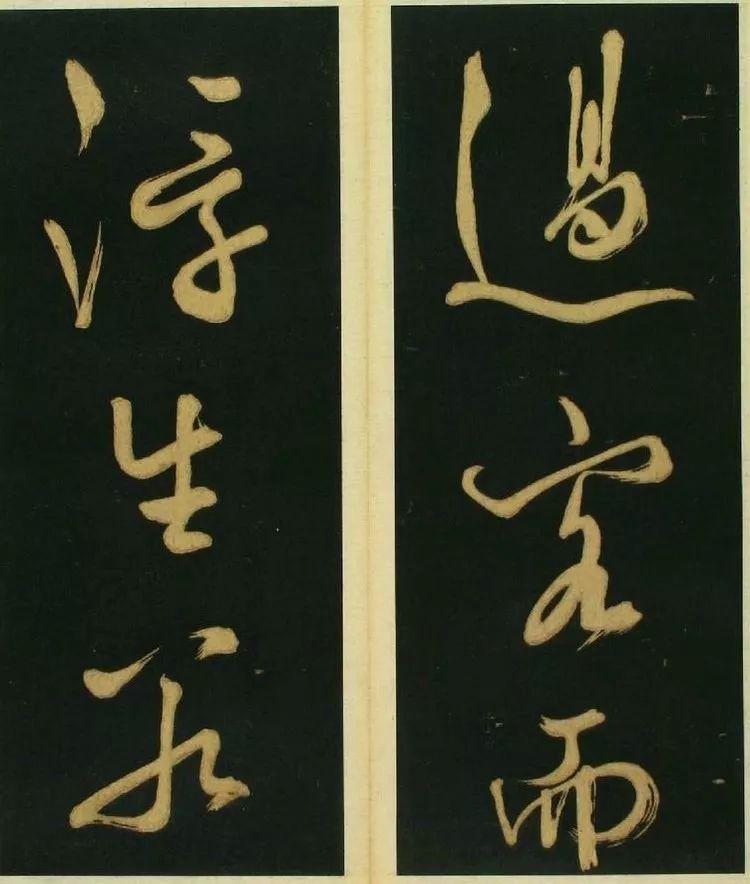 過客而
浮生若